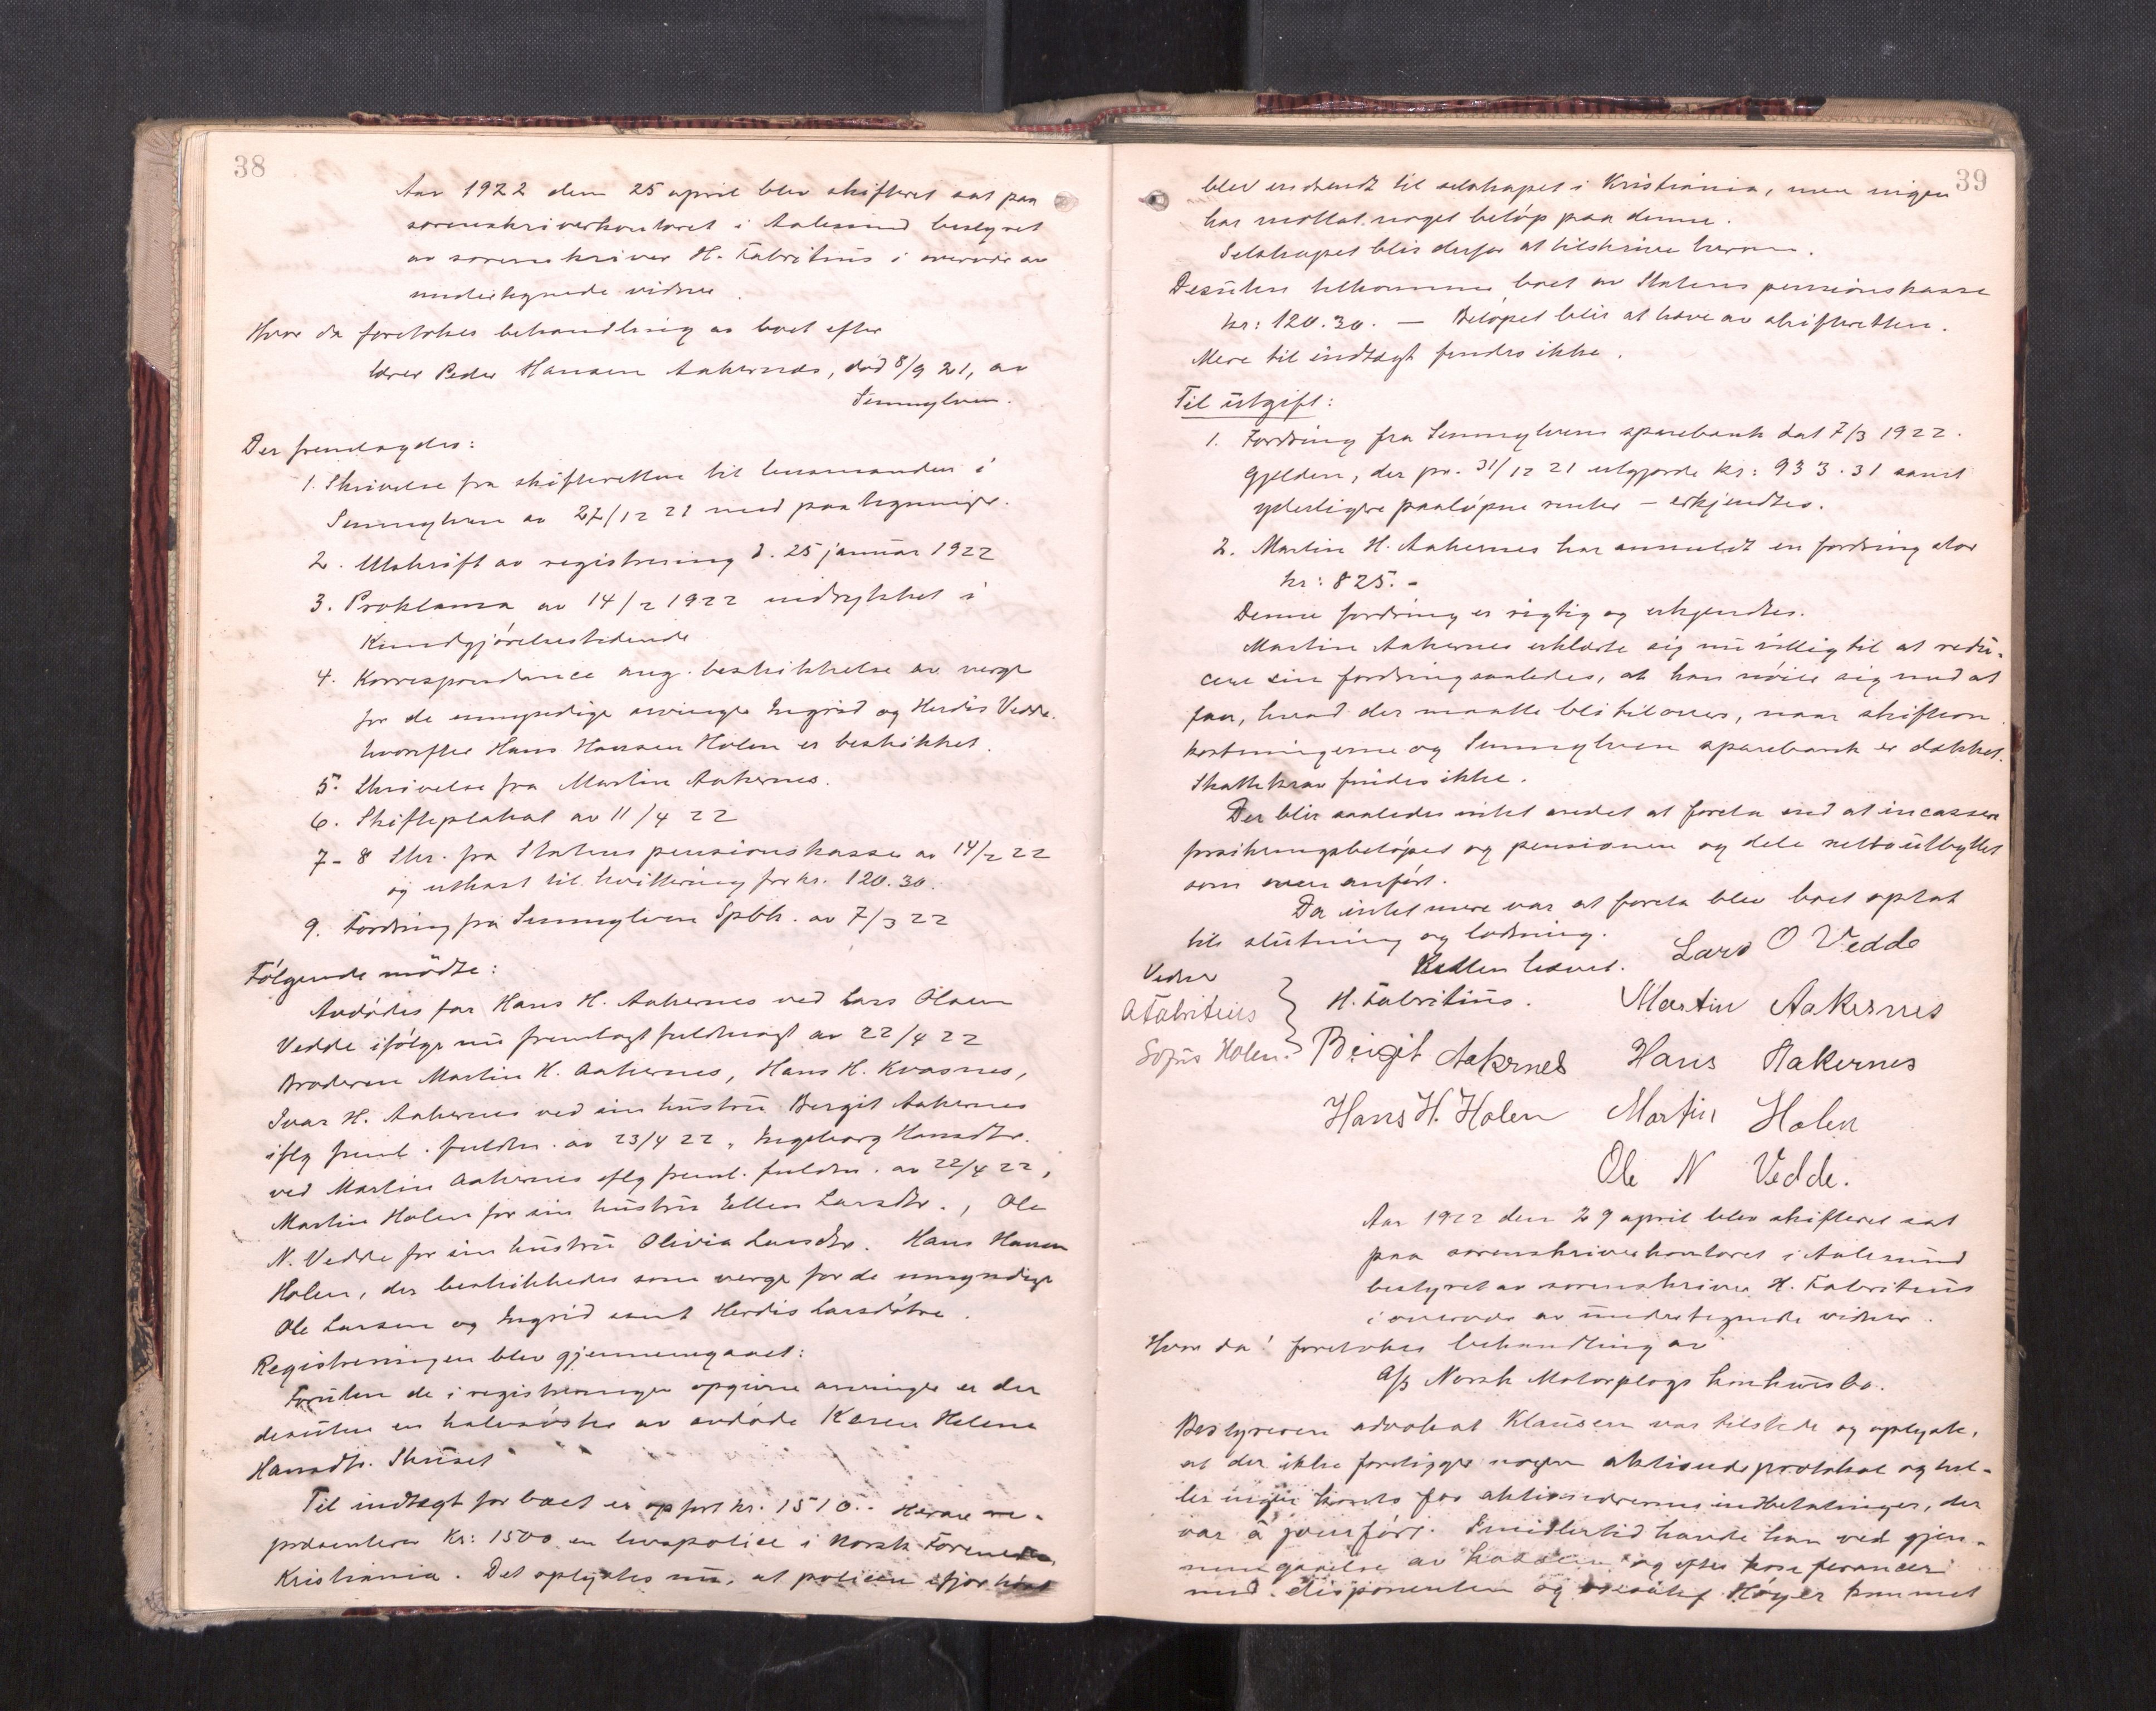 38
Aar 1922 den 25 april blev skifteret sat paa
sorenskriverkontoret i Aalesund bestyret
av sorenskriver H. Fabritius i overvær av
undertegnede vidner.
Hvor da foretokes behandling av boet efter
lærer Peder Hansen Aakernes, död 8/9 21, av
Sunnylven.
Der fremlagdes:
1. Skrivelse fra skifteretten til lensmanden i
Sunnylven av 27/12 21 med paategninger.
2. Utskrift av registrering d. 25 januar 1922
3. Proklama av 14/2 1922 indrykket i
Kundgjörelsestidende
4. Korrespondance ang. beskikkelse av verge
for de umyndige arvinger Ingrid og Herdis Vedde.
hvorefter Hans Hansen Holen er beskikket.
5. Skrivelse fra Martin Aakernes.
6. Skifteplakat av 11/4 22
7-8 Skr. fra Statens pensionskasse av 14/2 22
og utkast til kvittering for kr. 120.30.
9. Fordring fra Sunnylven Spbk. av 7/3 22
Fölgende mödte:
Avdödes far Hans H. Aakernes ved Lars Olsen
Vedde ifölge nu fremlagt fuldmagt av 22/4 22
Broderen Martin H. Aakernes, Hans H. Kvasnes,
Ivar H. Aakernes ved sin hustru Bergit Aakernes
iflg freml. fuldm. av 23/4 22, Ingeborg Hansdtr.
ved Martin Aakernes iflg freml. fuldm. av 22/4 22,
Martin Holen for sin hustru Ellen Larsdtr., Ole
N. Vedde for sin hustru Olivia Larsdtr. Hans Hansen
Holen, der beskikkedes som verge for de umyndige
Ole Larsen og Ingrid samt Herdis Larsdötre.
Registreringen blev gjennemgaaet:
Foruten de i registreringen opgivne arvinger er der
desuten en halvsöster av avdöde Karen Helene
Hansdtr. Skuset
Til indtægt for boet er opfört kr. 1510.- Herav re-
præsenterer Kr: 1500 en livspolice i Norsk Forenede
Kristiania. Det oplystes nu, at policen ifjor höst
39
blev indsendt til selskapet i Kristiania, men ingen
har mottat noget belöp paa denne.
Selskapet blir derfor at tilskrive herom.
Desuten tilkommer boet av Statens pensionskasse
kr: 120.30. — Belöpet blir at hæve av skifteretten.
Mere til indtægt findes ikke.
Til utgift:
1. Fordring fra Sunnylvens sparebank dat 7/3 1922.
Gjelden, der pr. 31/12 21 utgjorde kr: 933.31 samt
yderligere paalöpne renter — erkjendtes.
2. Martin H. Aakernes har anmeldt en fordring stor
kr: 825.-
Denne fordring er rigtig og erkjendtes.
Martin Aakernes erklærte sig nu villig til at redu-
cere sin fordring saaledes, at han nöier sig med at
faa, hvad der maatte bli tilovers, naar skifteom
kostningerne og Sunnylven sparebank er dækket.
Skattekrav findes ikke.
Der blir saaledes intet andet at foreta end at incassere
forsikringsbelöpet og pensionen og dele nettoutbyttet
som oven anfört.
Da intet mere var at foreta blev boet optat
til slutning og lodning.
Retten hævet. Lars O Vedde
Vidner
A Fabritius } H. Fabritius. Martin Aakernes
Sofus Holen. Bergit Aakernes Hans Aakernes
Hans H. Holen Martin Holen
Ole N Vedde.
Aar 1922 den 29 april blev skifteret sat
paa sorenskriverkontoret i Aalesund
bestyret av sorenskriver H. Fabritius
i overvær av undertegnede vidner.
Hvor da foretokes behandling av
A/S Norsk Motorplogs konkursbo.
Bestyreren advokat Klausen var tilstede og oplyste,
at der ikke foreligger nogen aktionærprotokol og hel-
ler ingen konto for aktionærernes indbetalinger, der
var à jourfört. Imidlertid havde han ved gjen-
nemgaaelse av kassen og efter konferancer
med disponenten og Höyer kommet